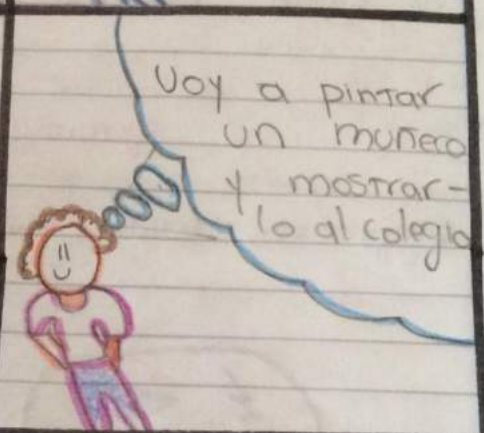 Voy a pintar
un muñeco
y mostrar-
lo al colegio